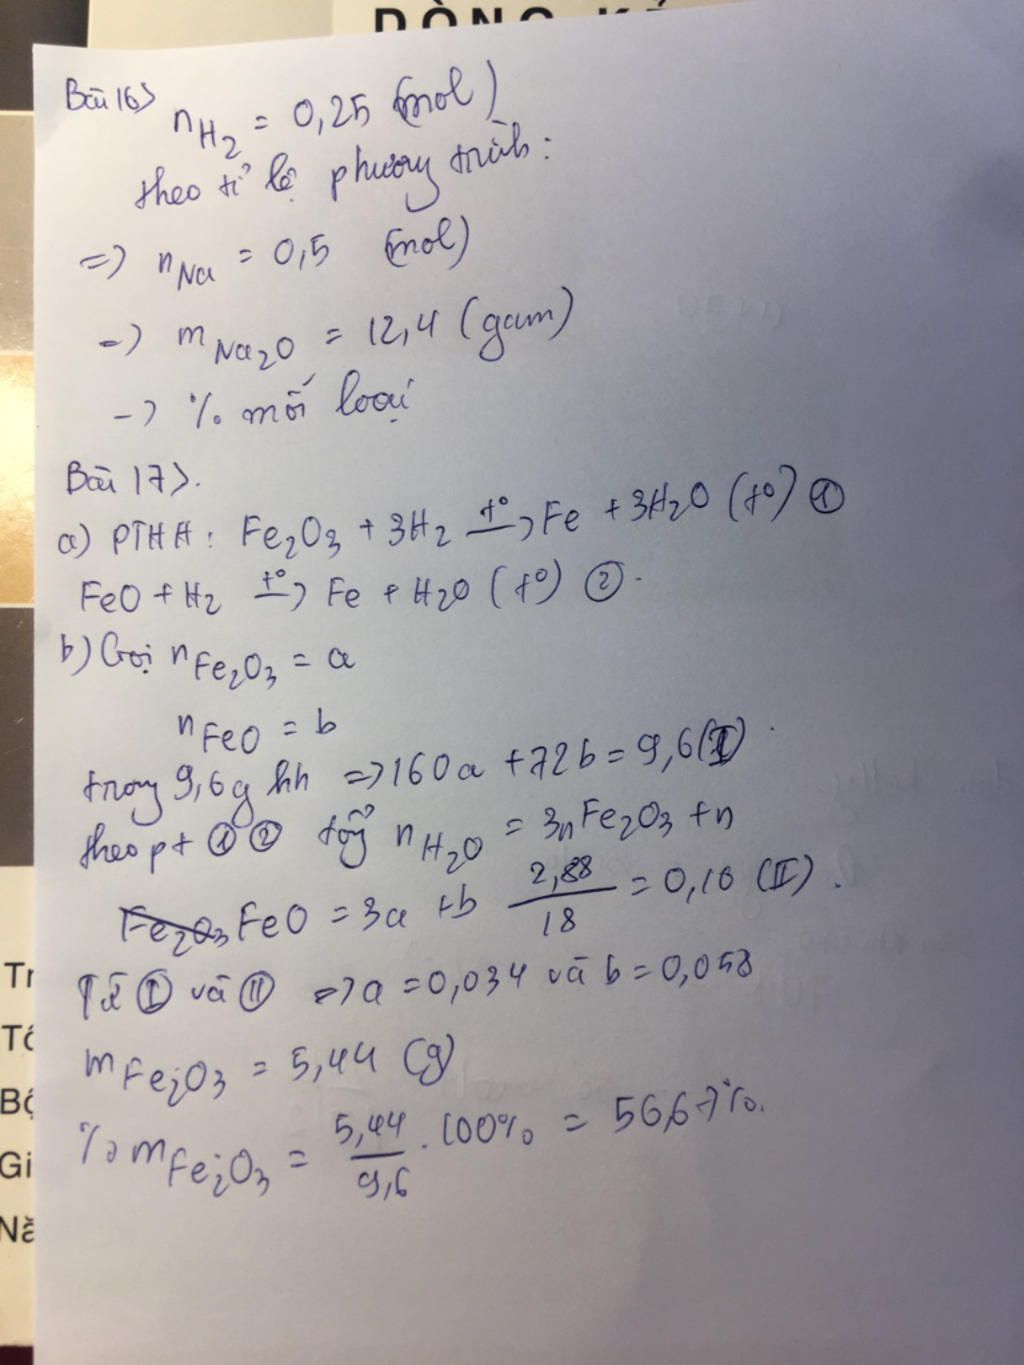 DÒNG KẺ
Bài 16>
nH₂ = 0,25 (mol)
theo tỉ lệ phương trình:
=> nNa = 0,5 (mol)
-> mNa₂O = 12,4 (gam)
-> % mỗi loại
Bài 17>.
a) PTHH: Fe₂O₃ + 3H₂ →(t°) Fe + 3H₂O (t°) ①
FeO + H₂ →(t°) Fe + H₂O (t°) ②.
b) Gọi nFe₂O₃ = a
nFeO = b
trong 9,6g hh => 160a + 72b = 9,6 (I)
theo pt ① ② tổng nH₂O = 3nFe₂O₃ + n
Fe₂O₃ FeO = 3a + b 2,88/18 = 0,16 (II).
Từ Ⅰ và Ⅱ => a = 0,034 và b = 0,058
mFe₂O₃ = 5,44 (g)
% mFe₂O₃ = 5,44/9,6 . 100% = 56,67%.
Tr
Tố
Bộ
Gi
Nă